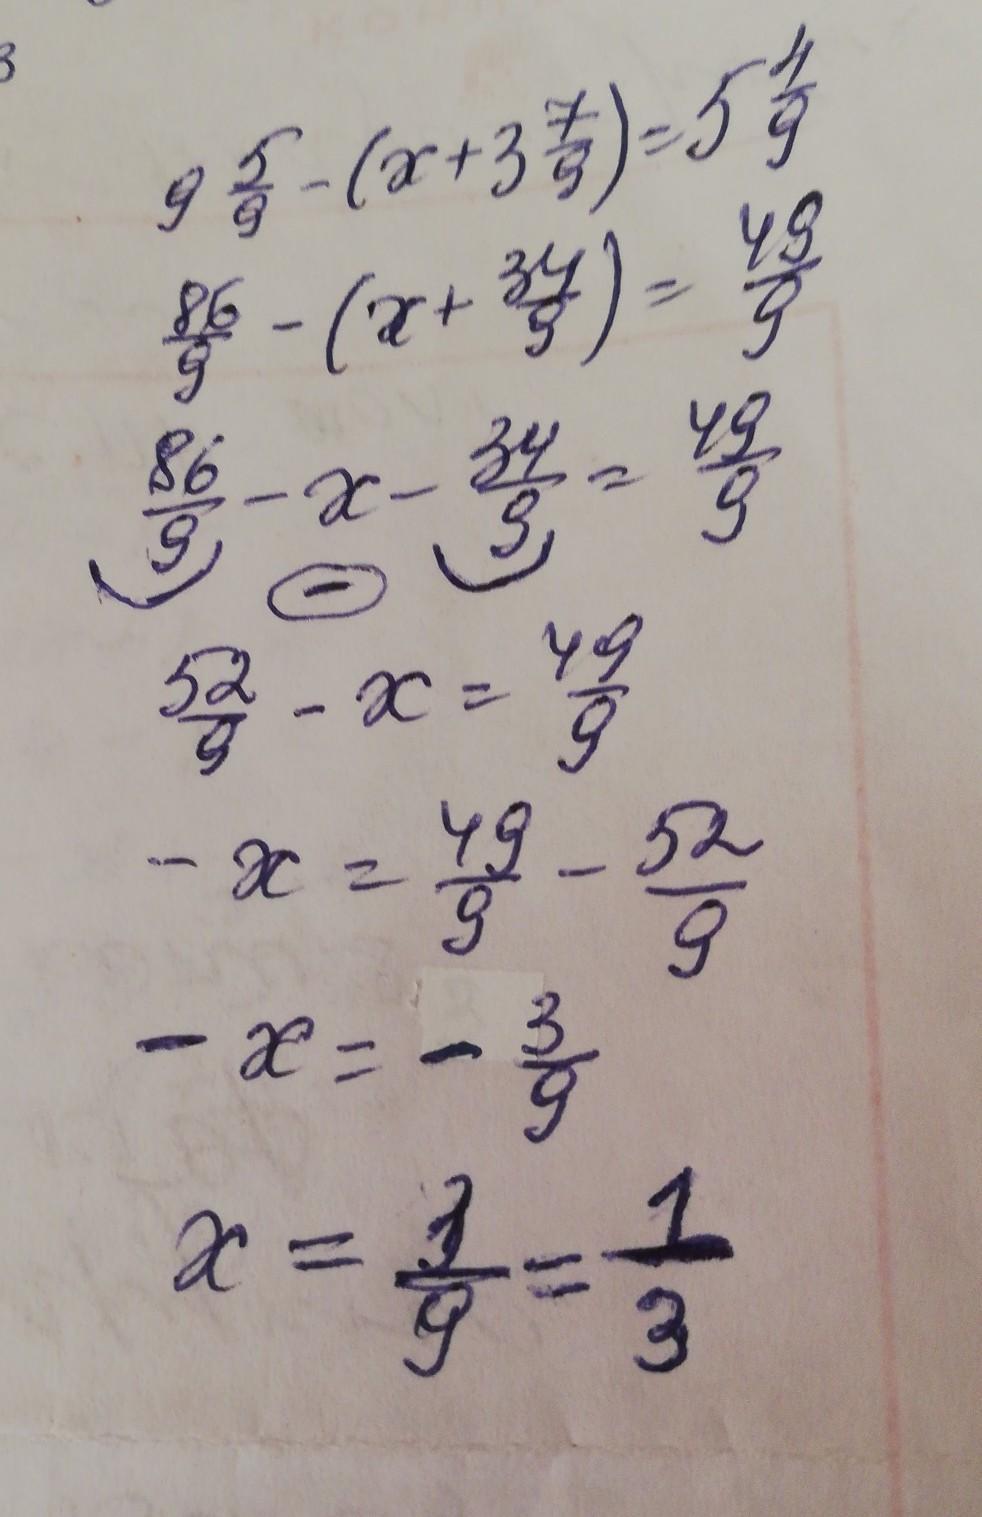 3
9 5/9 - (x + 3 7/9) = 5 4/9
86/9 - (x + 34/9) = 49/9
86/9 - x - 34/9 = 49/9
-
52/9 - x = 49/9
- x = 49/9 - 52/9
- x = - 3/9
x = 3/9 = 1/3